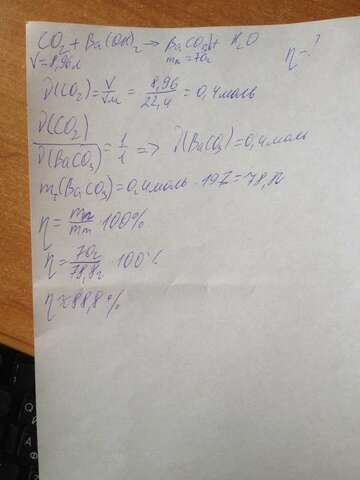 CO₂ + Ba(OH)₂ → BaCO₃↓ + H₂O
V = 8,96л mп = 70г η - ?
ν(CO₂) = V/Vм = 8,96/22,4 = 0,4 моль
ν(CO₂)/ν(BaCO₃) = 1/1 => ν(BaCO₃) = 0,4 моль
mт(BaCO₃) = 0,4 моль · 197 = 78,8г
η = mп/mт · 100%
η = 70г/78,8г · 100%
η ≈ 88,8%